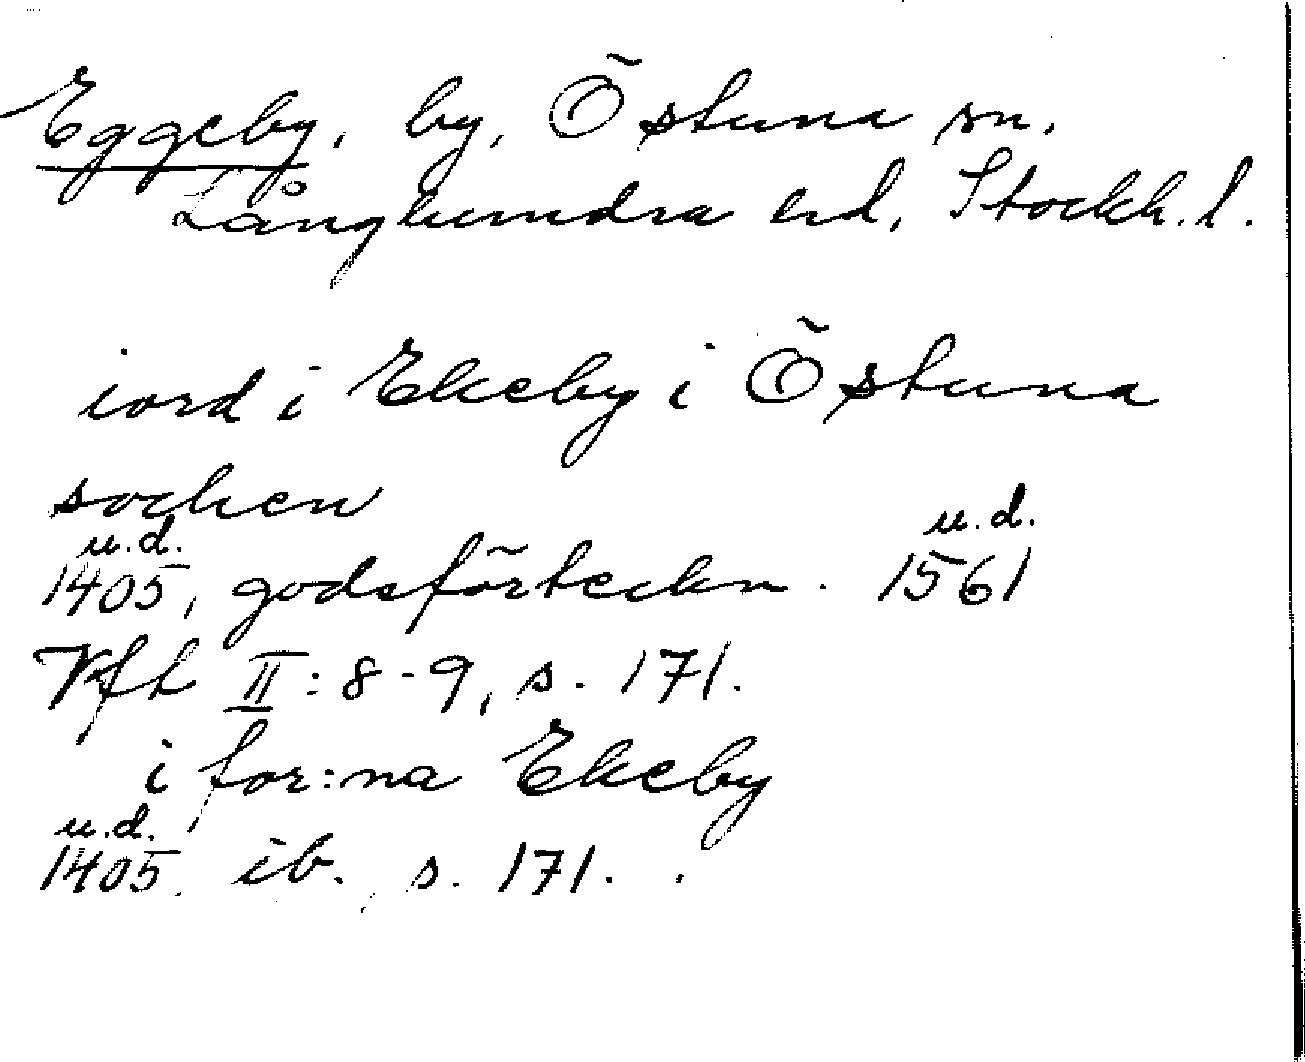 Eggeby, by, Östuna sn.
Långhundra hd, Stockh. l.
iord i Ekeby i Östuna
socken
u.d. u.d.
1405, godsförteckn. 1561
Vfh II: 8-9, s. 171.
i for:na Ekeby
u.d.
1405. ib., s. 171.